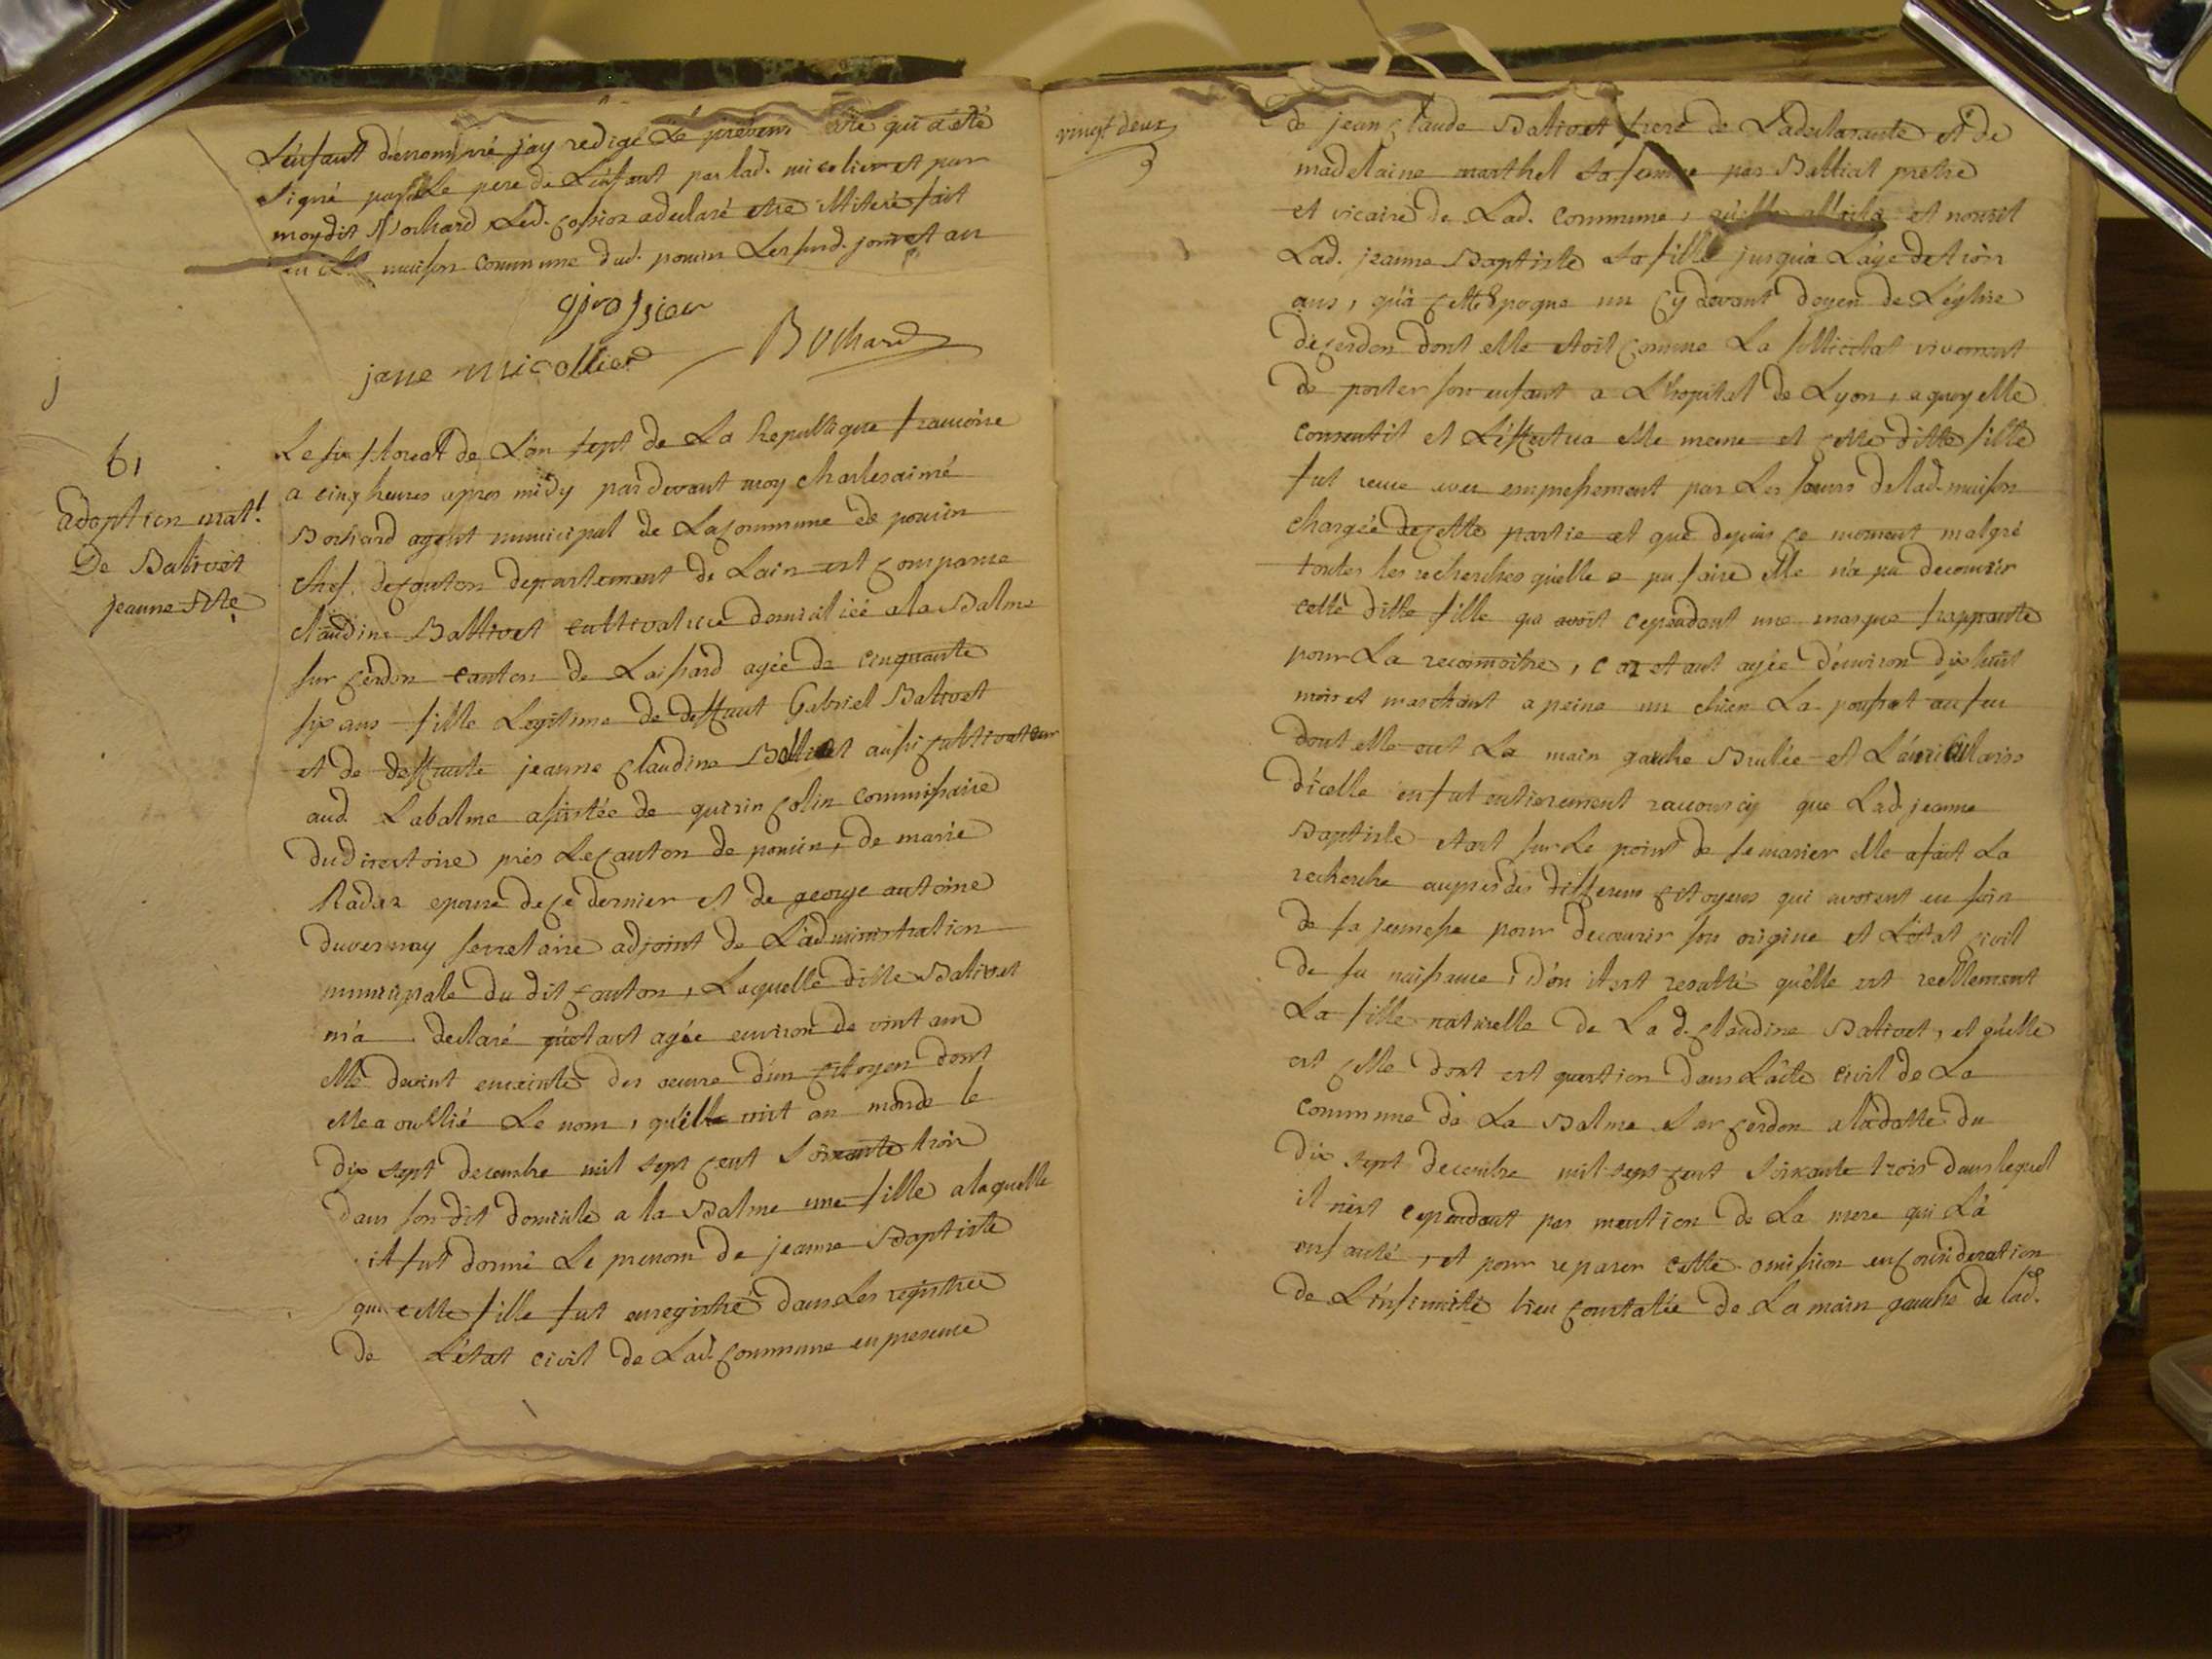 L'enfant denommé j'ay redigé Le présent acte qui a été
signé par Le pere de L'enfant par lad. micolier et par
moy dit Bochard Led. a declaré etre illiteré fait
en la maison commune dud. poncin Les susd. jour et an
grossier
jane micollier
Bochard
j
61
adoption nat.l
De Balivet
jeanne Bte
Le six floreal de L'an sept de La Republique francoise
a cinq heures apres midy pardevant moy charles aimé
Bochard agent municipal de La commune de poncin
chef. de canton departement de Lain est comparue
claudine Ballivet cultivatrice domiciliée a la Balme
sur cerdon canton de Laissard agée de cinquante
six ans fille Legitime de deffunt Gabriel Balivet
et de deffunte jeanne claudine Balivet aussi cultivateur
aud. Labalme assistée de guerin colin commissaire
du directoire près Le canton de poncin, de marie
Radix epouse de ce dernier et de george antoine
duvernay secretaire adjoint de L'administration
municipale du dit canton, Laquelle ditte Balivet
m'a declaré qu'etant agée environ de vint ans
elle devint enceinte des oeuvre d'un citoyen dont
elle a oublié Le nom, qu'elle mit au monde le
dix sept decembre mil sept cent soixante trois
dans son dit domicile a la Balme une fille a laquelle
il fut donné Le prenom de jeanne Baptiste
que cette fille fut enregistré dans Les registres
de L'état civil de Lad. commune en presence
vingt deux
de jean claude Balivet frere de La declarante et de
madelaine marthel sa femme par Balliat pretre
et vicaire de Lad. commune, qu'elle allaita et nourit
Lad. jeanne Baptiste sa fille jusqu'a L'age de trois
ans, qu'a cette Epoque un cy devant doyen de L'église
de cerdon dont elle etoit connue La sollicitat vivement
de porter son enfant a L'hopital de Lyon, a quoy elle
consentit et L'effectua elle meme et cette ditte fille
fut recue avec empressement par Les soeurs de lad. maison
chargée de cette partie et que depuis ce moment malgré
toutes les recherches qu'elle a pu faire elle n'a pu decouvrir
cette ditte fille qui avoit cependant une marque frappante
pour La reconnoitre, car etant agée d'environ dix huit
mois et marchant a peine un chien La poussat au feu
dont elle eut La main gauche Brulée et L'auriculaire
d'icelle en fut entierement raccourcy que Lad. jeanne
Baptiste etant sur Le point de se marier elle a fait La
recherche aupres des differens citoyens qui avoient eu soin
de sa jeunesse pour decouvrir son origine et L'état civil
de sa naissance, d'ou il est resulté qu'elle est reellement
La fille naturelle de La d. claudine Balivet, et qu'elle
est celle dont est question dans L'acte civil de La
commune de La Balme sur cerdon a la datte du
dix sept decembre mil sept cent soixante trois dans lequel
il n'est cependant pas mention de La mere qui L'a
enfanté, et pour reparer cette omission en consideration
de L'infirmité bien constatée de La main gauche de lad.